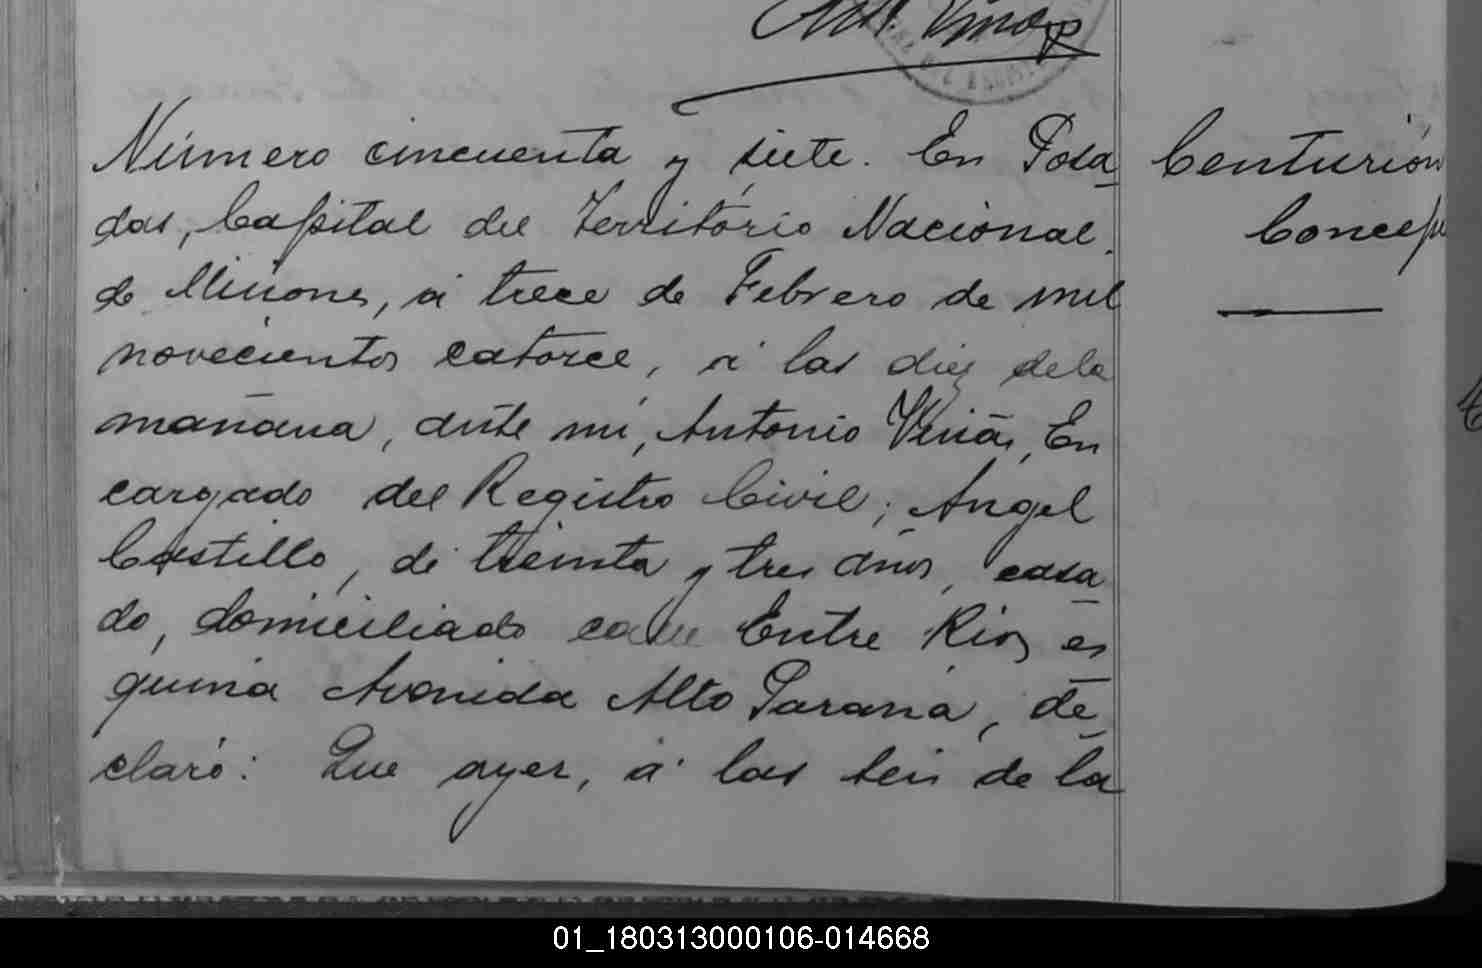 Ant. Viñas
Número cincuenta y siete. En Posa
das, Capital del Território Nacional.
de Misiones, á trece de Febrero de mil
novecientos catorce, á las diez de la
mañana, ante mi, Antonio Viñas, En
cargado del Registro Civil; Angel
Castillo, de treinta y tres años, casa
do, domiciliado calle Entre Rios es
quina Avenida Alto Paraná, de
claró: Que ayer, á las seis de la
Centurión
Concep
01_180313000106-014668